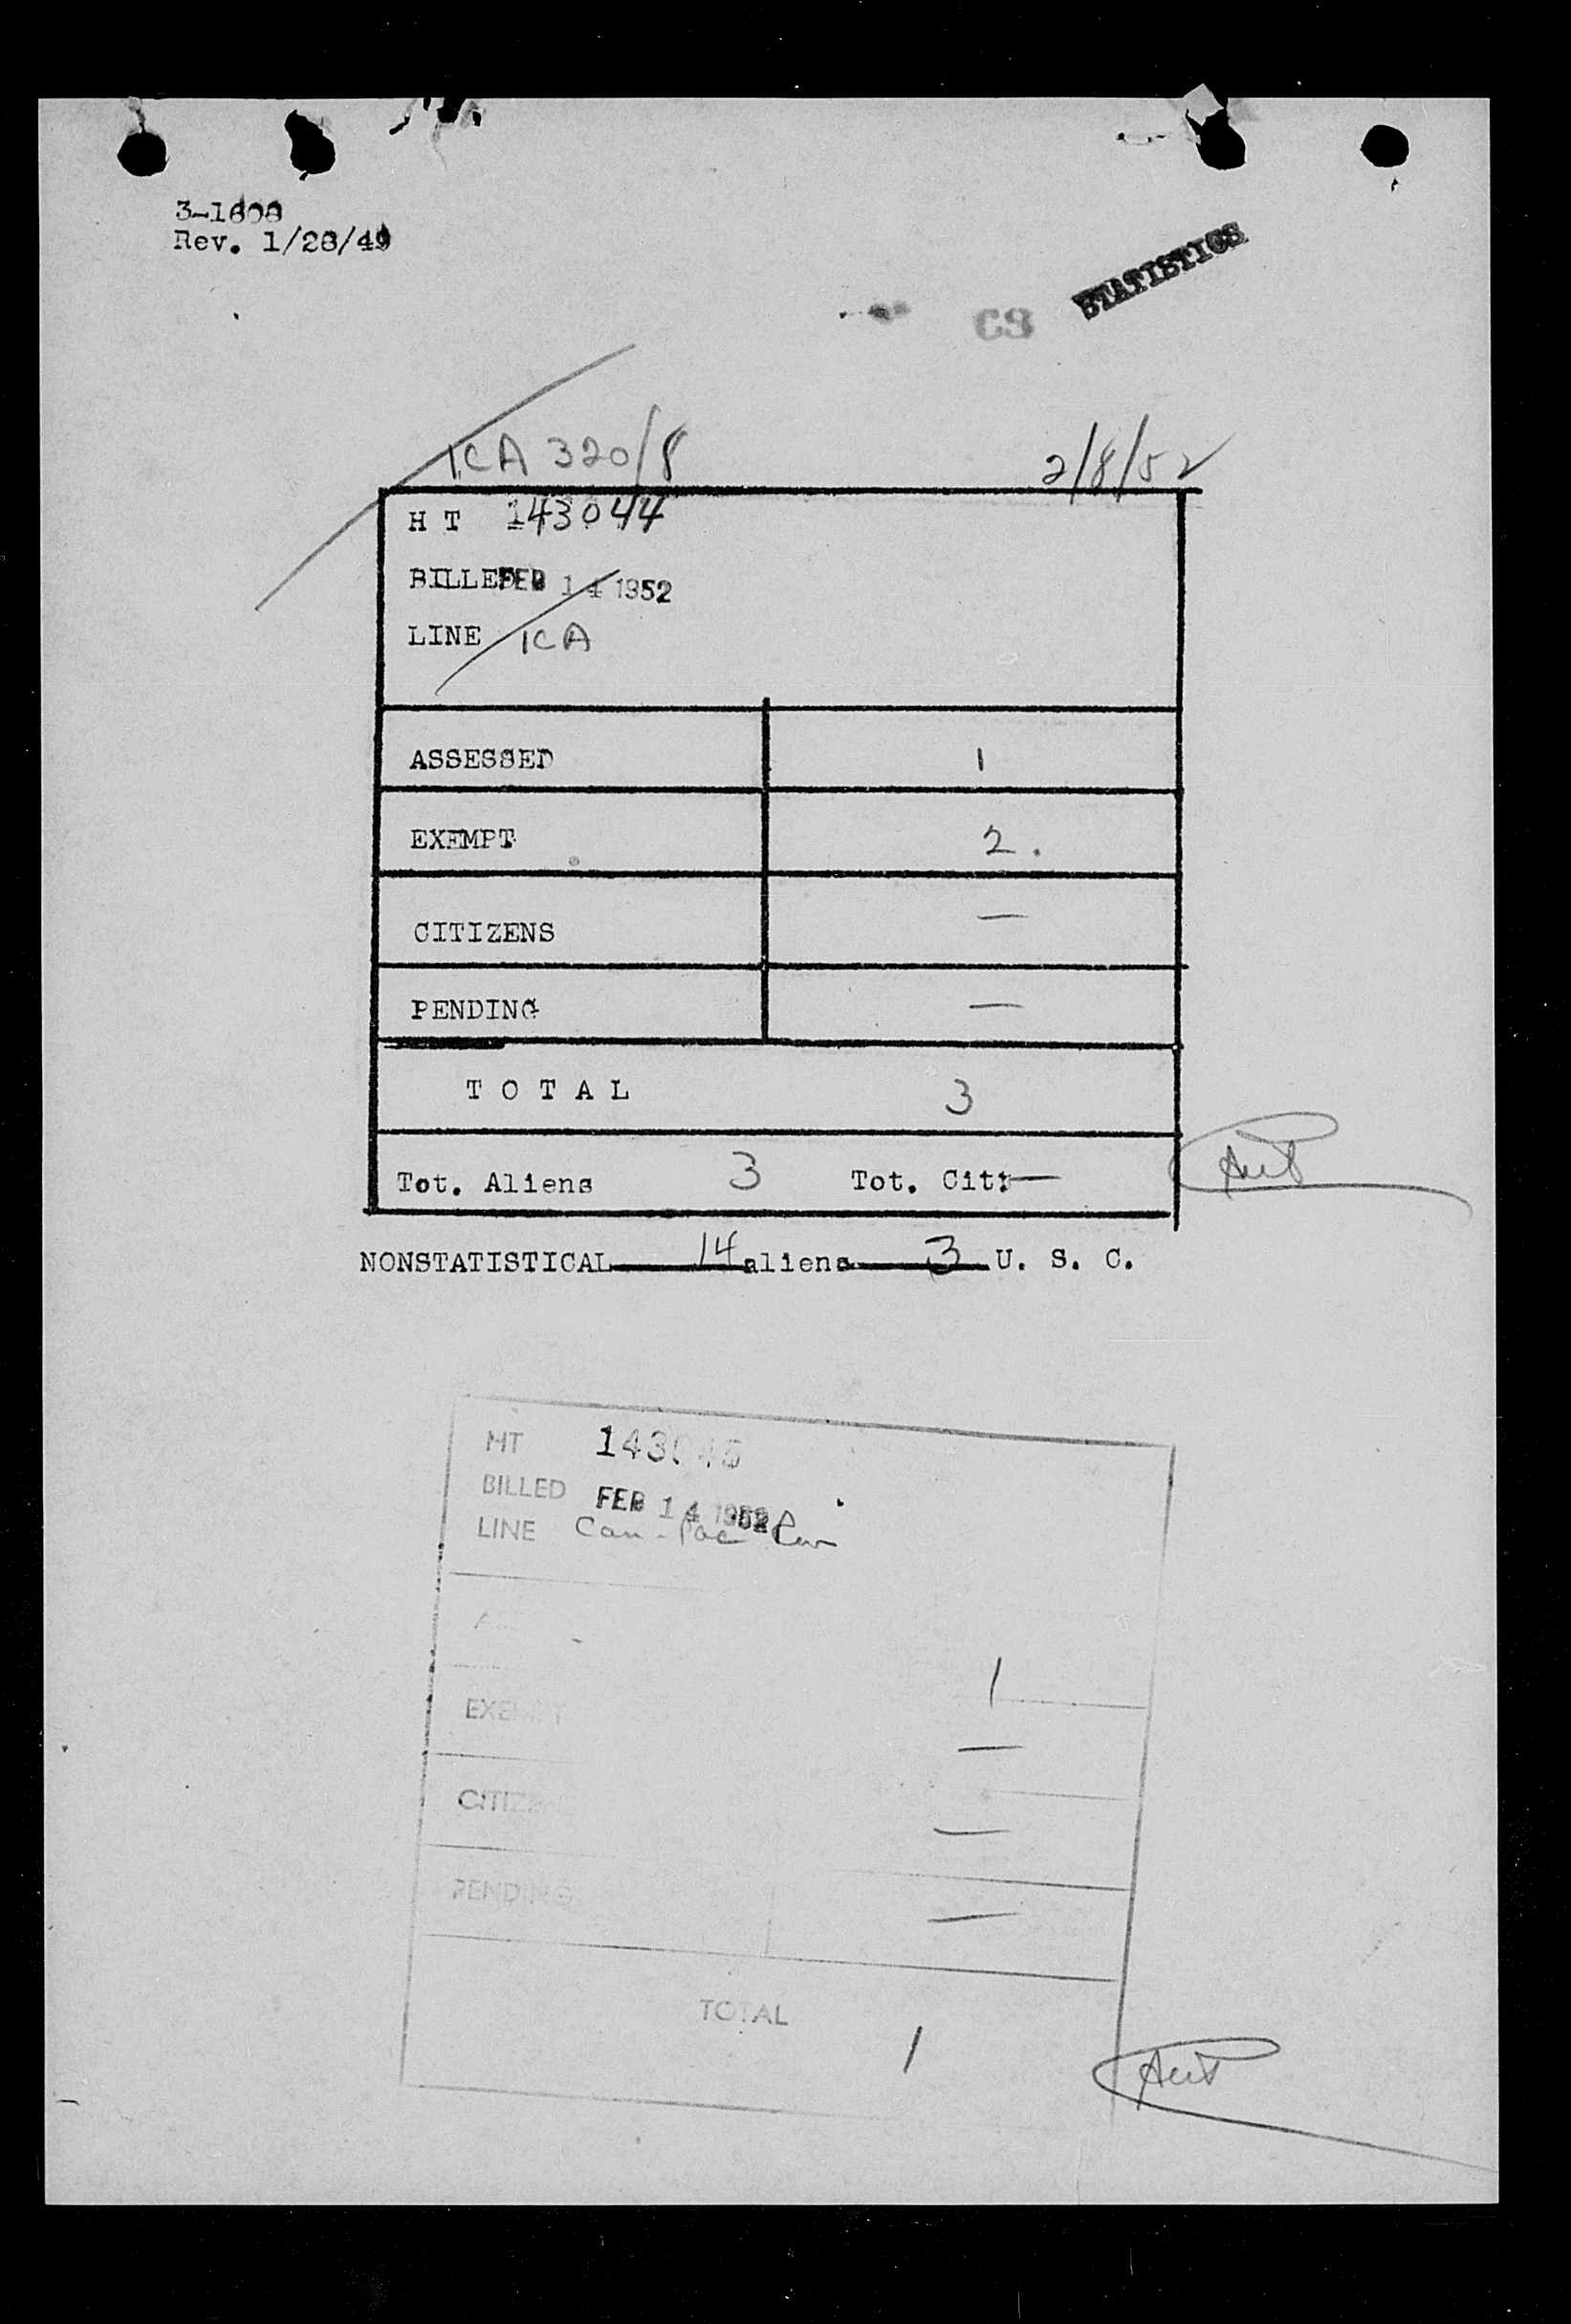 3-1608
Rev. 1/28/49
STATISTICS
C3
ICA 320/8
2/8/52
HT 143044
BILLED FEB 14 1952
LINE ICA
ASSESSED 1
EXEMPT 2.
CITIZENS —
PENDING —
TOTAL 3
Tot. Aliens 3 Tot. Cit: —
NONSTATISTICAL 14 aliens 3 U. S. C.
HT 143045
BILLED FEB 14 1952
LINE Can-Pac
1
EXEMPT —
CITIZENS —
PENDING —
TOTAL 1